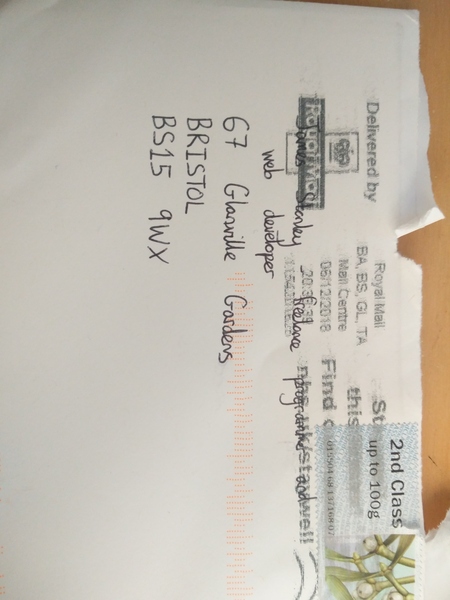 Delivered by
Royal Mail
Royal Mail
BA, BS, GL, TA
Mail Centre
06/12/2018
20:39:39
Find
this
St
nhs.uk/stadwell
2nd Class
up to 100g
James Stanley freelance programmer and
web developer
67 Glanville Gardens
BRISTOL
BS15 9WX